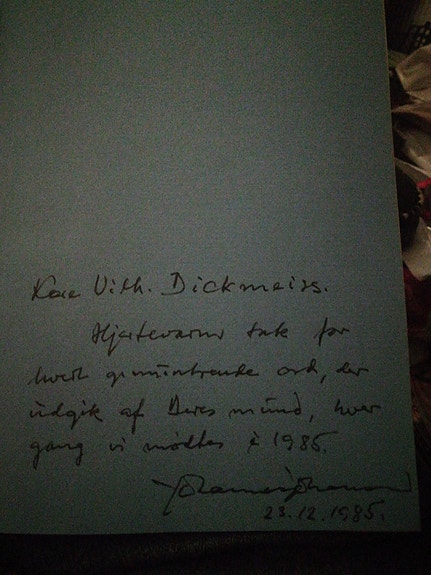 Kære Vilh. Dickmeiss.
Hjertevarm tak for
hvert opmuntrende ord, der
udgik af Deres mund, hver
gang vi mødtes i 1985.
23.12.1985.